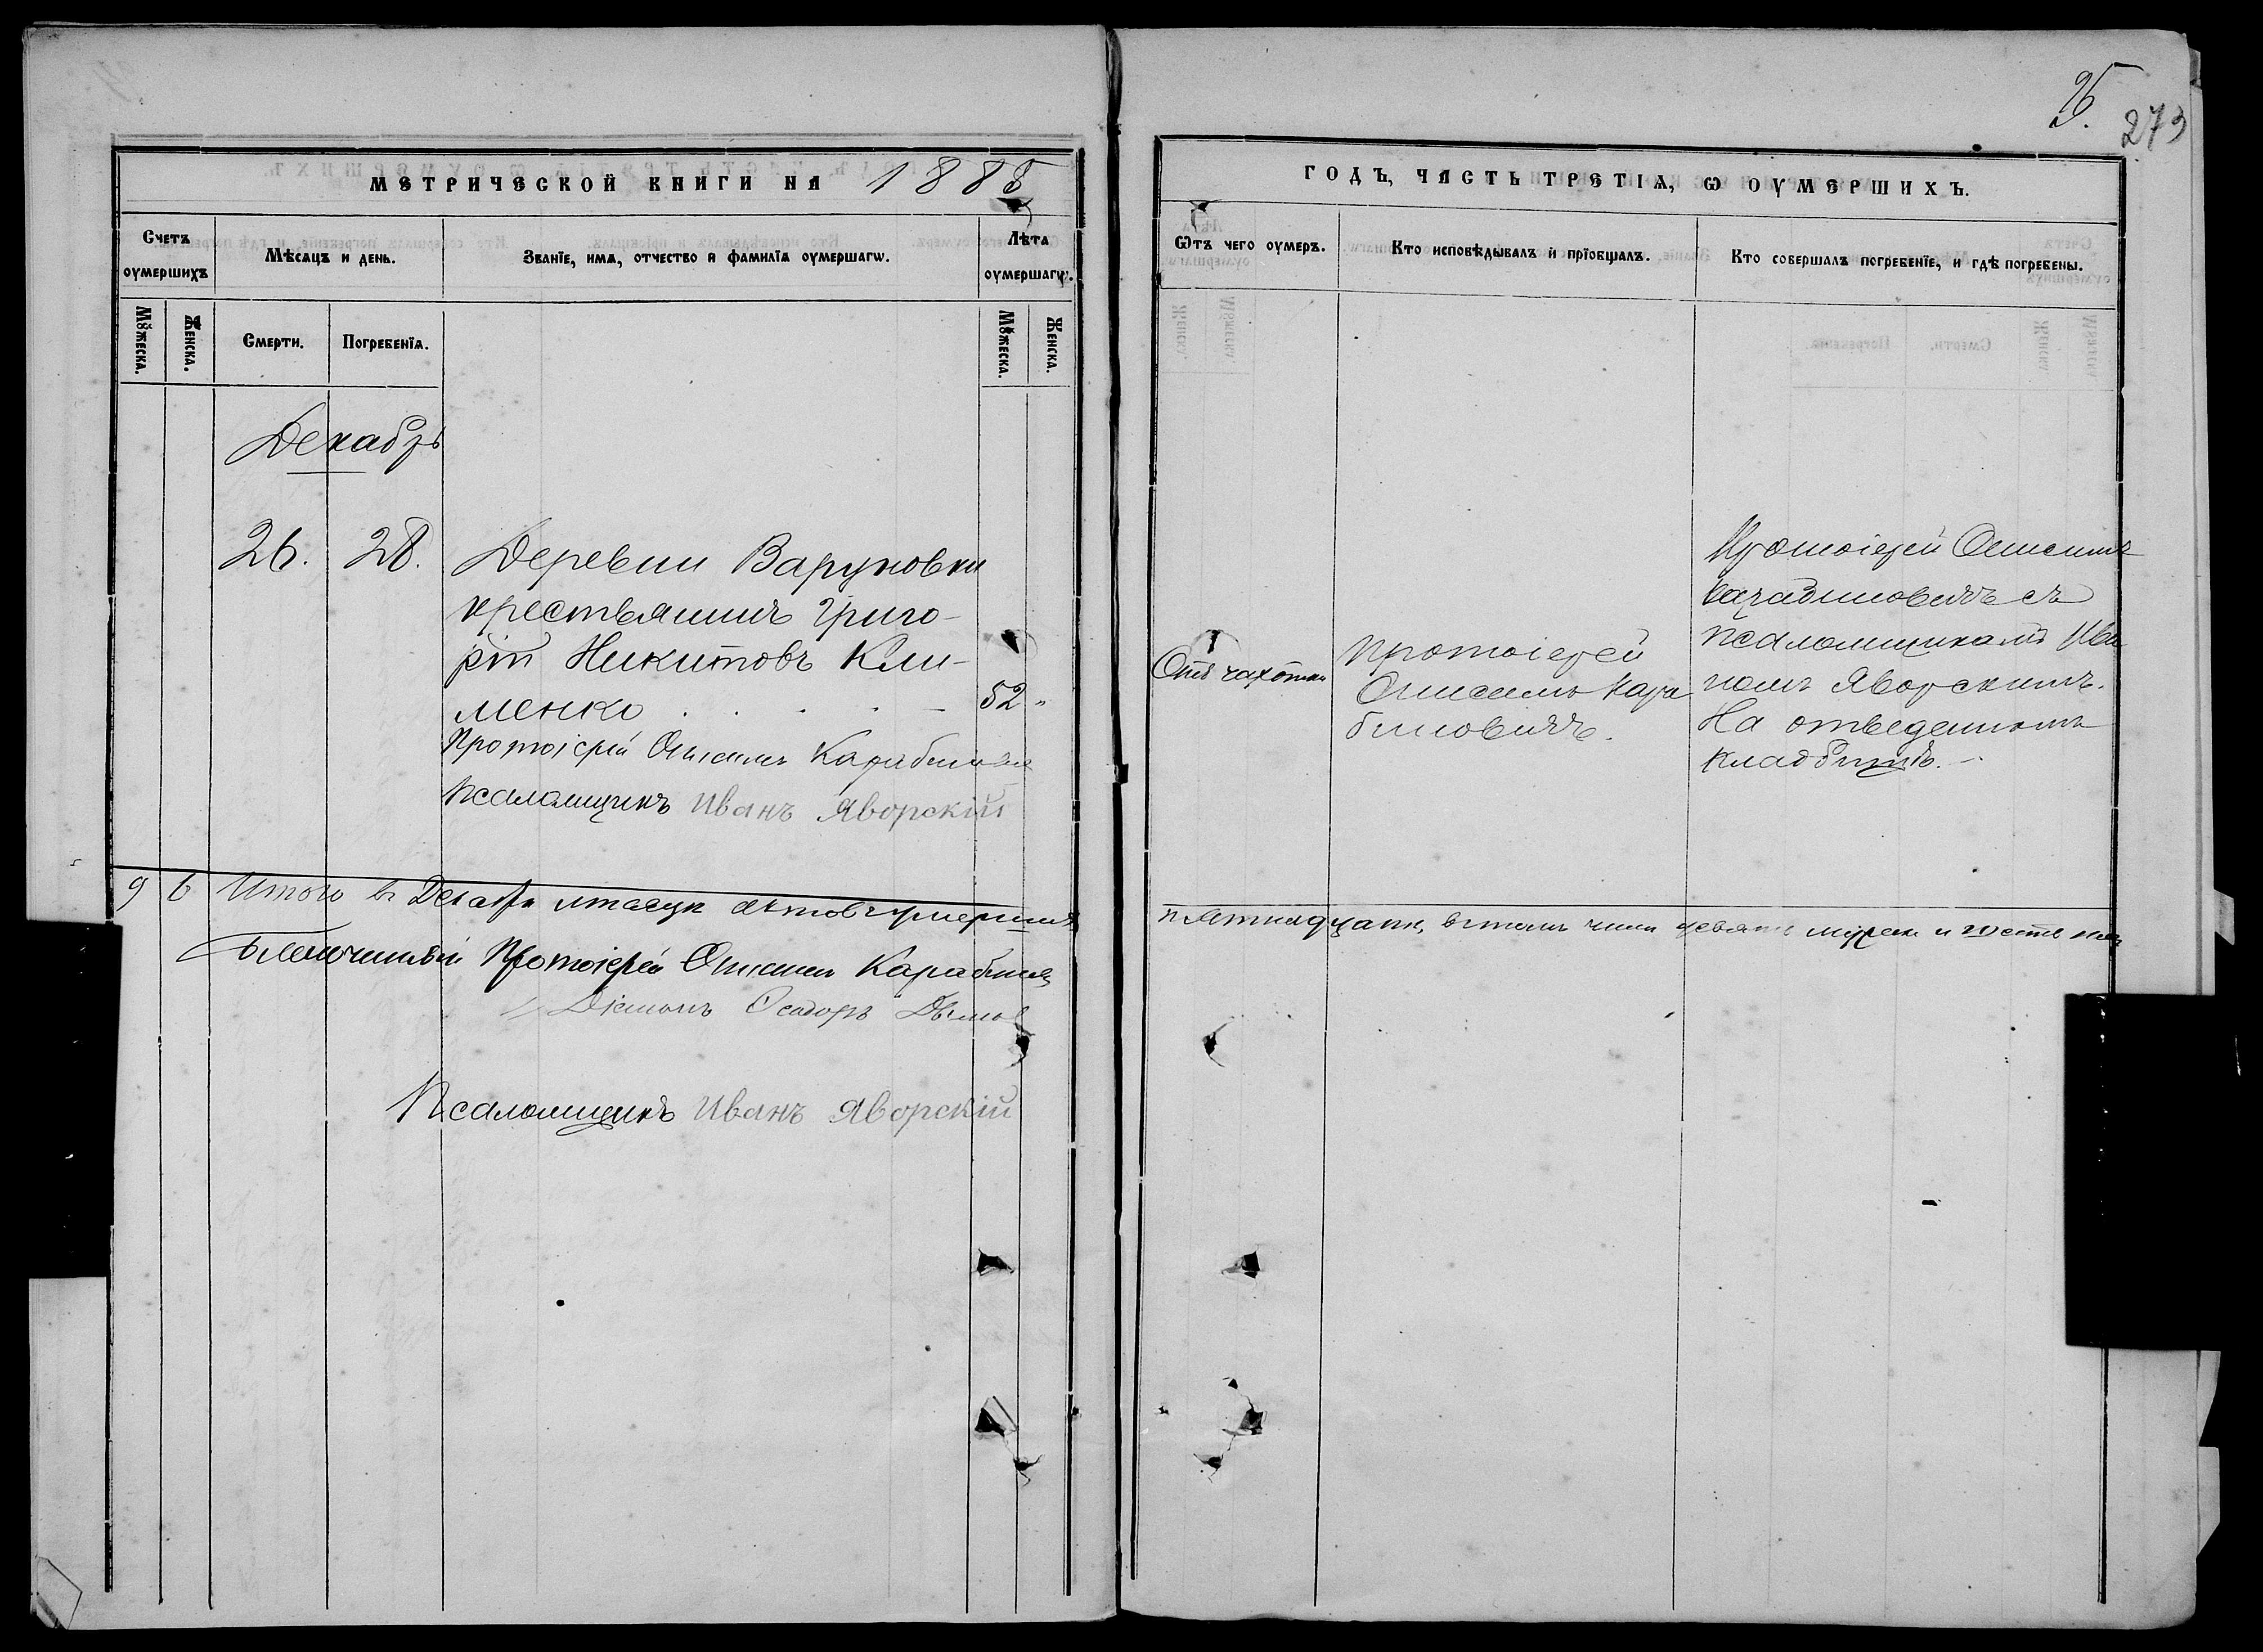 273
МЕТРИЧЕСКОЙ КНИГИ НА 1885
ГОДЪ, ЧАСТЬ ТРЕТІѦ, Ѡ ОУМЕРШИХЪ.
Счетъ оумершихъ
Мѣсяцъ и день.
Званїе, имѧ, отчество и фамилїѧ оумершагѡ.
Лѣта оумершагѡ.
Ѿтъ чего оумеръ.
Кто исповѣдывалъ и прїобщалъ.
Кто совершалъ погребенїе, и гдѣ погребены.
Мꙋжеска.
Женска.
Смерти.
Погребенїѧ.
Мꙋжеска.
Женска.
Декабрь
26. 28. Деревни Варуновки
крестьянинъ Григо-
рій Никитовъ Кли-
менко 52 "
Протоіерей Онисимъ Карабинов
Псаломщикъ Иванъ Яворскій
Отъ чахотки
Протоіерей
Онисимъ Кара
биновичъ.
Протоіерей Онисимъ
Карабиновичъ съ
псаломщикомъ Ива
номъ Яворскимъ.
На отведенномъ
кладбищѣ.
9 6 Итого въ Декабрѣ мѣсяцѣ умершихъ
пятнадцать, въ томъ числѣ девять муж и шесть жен
Благочинный Протоіерей Онисимъ Карабинов
Діаконъ
Псаломщикъ Иванъ Яворскій